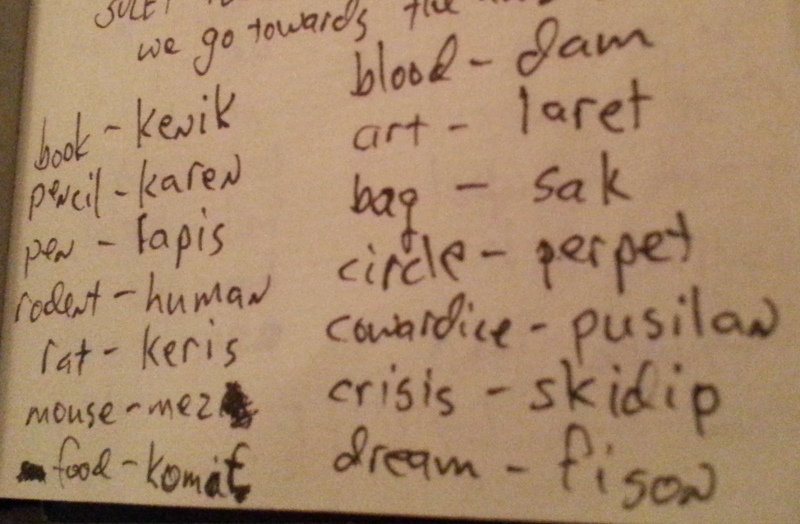 we go towards the
book - kenik
pencil - karen
pen - tapis
rodent - human
rat - keris
mouse - mez
food - komat
blood - dam
art - laret
bag - sak
circle - perpet
cowardice - pusilan
crisis - skidip
dream - fison